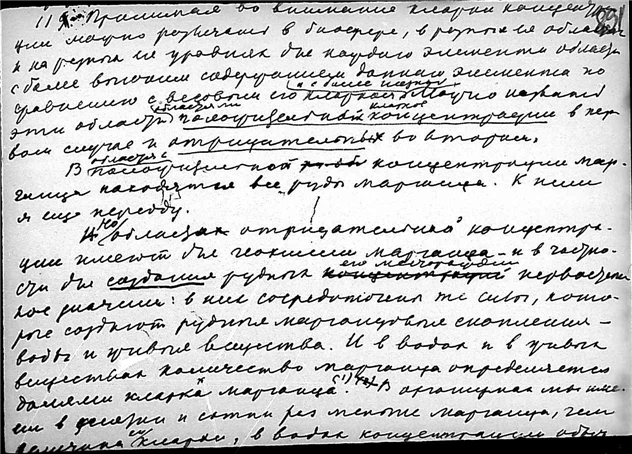 119. Принимая во внимание кларки концентра-
ции можно различать в биосфере, в разных ее областях
и на разных ее уровнях для каждого элемента области
с более высоким содержанием данного элемента по
сравнению с весовым его кларком и с более низким. Можно назвать
эти области областями положительной концентрации кларков в пер-
вом случае и отрицательных во втором.
В областях положительной концентрации мар-
ганца находятся все руды марганца. К ним
я еще перейду.
Но области отрицательной концентра-
ции имеют для геохимии марганца и в частно-
сти для создания рудных его месторождений первостепен
ное значение: в них сосредоточены те силы, кото-
рые создают рудные марганцовые скопления –
воды и живые вещества. И в водах и в живых
веществах количество марганца определяется
долями кларка марганца. В организмах мы име-
ем в десятки и сотни раз меньше марганца, чем
величина его кларки, в водах концентрации